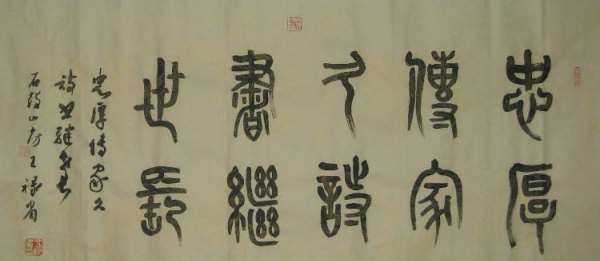 忠厚
傳家
久詩
書繼
世長
忠厚傳家久
詩書繼世長
石鼓山房王